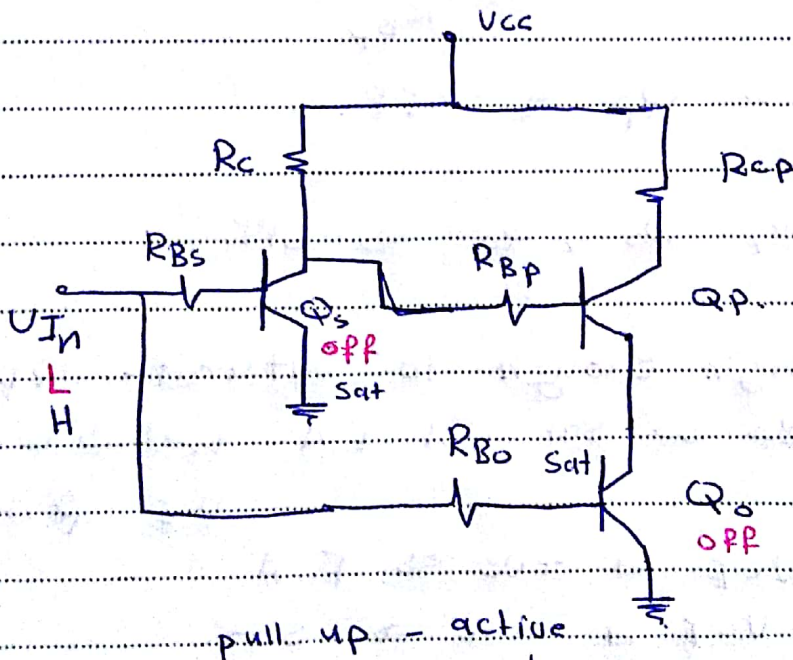 Vcc
Rc
Rcp
RBs
RBp
Qs
Qp.
UIn
off
L
Sat
H
RBo
Sat
Qo
off
pull up - active